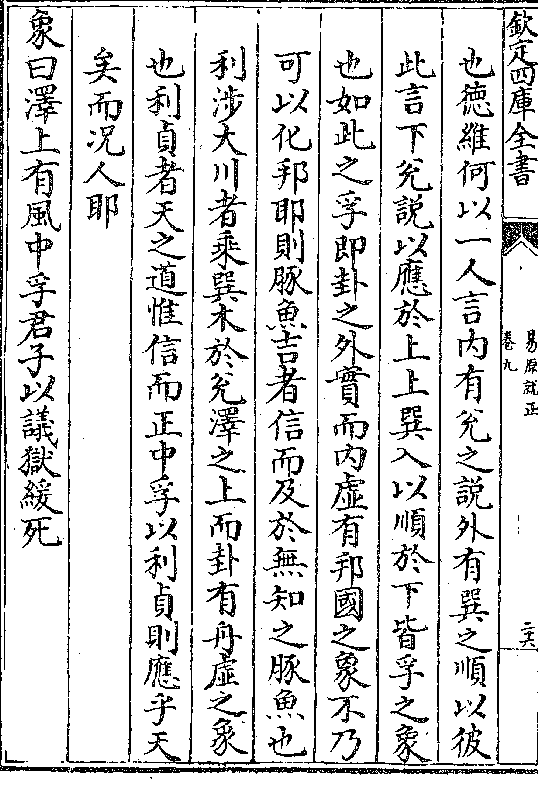 欽定四庫全書
易原就正
卷九
二六
也德維何以一人言内有兊之説外有巽之順以彼
此言下兊説以應於上上巽入以順於下皆孚之象
也如此之孚即卦之外實而内虚有邦國之象不乃
可以化邦耶則豚魚吉者信而及於無知之豚魚也
利涉大川者乘巽木於兊澤之上而卦有舟虚之象
也利貞者天之道惟信而正中孚以利貞則應乎天
矣而况人耶
象曰澤上有風中孚君子以議獄緩死